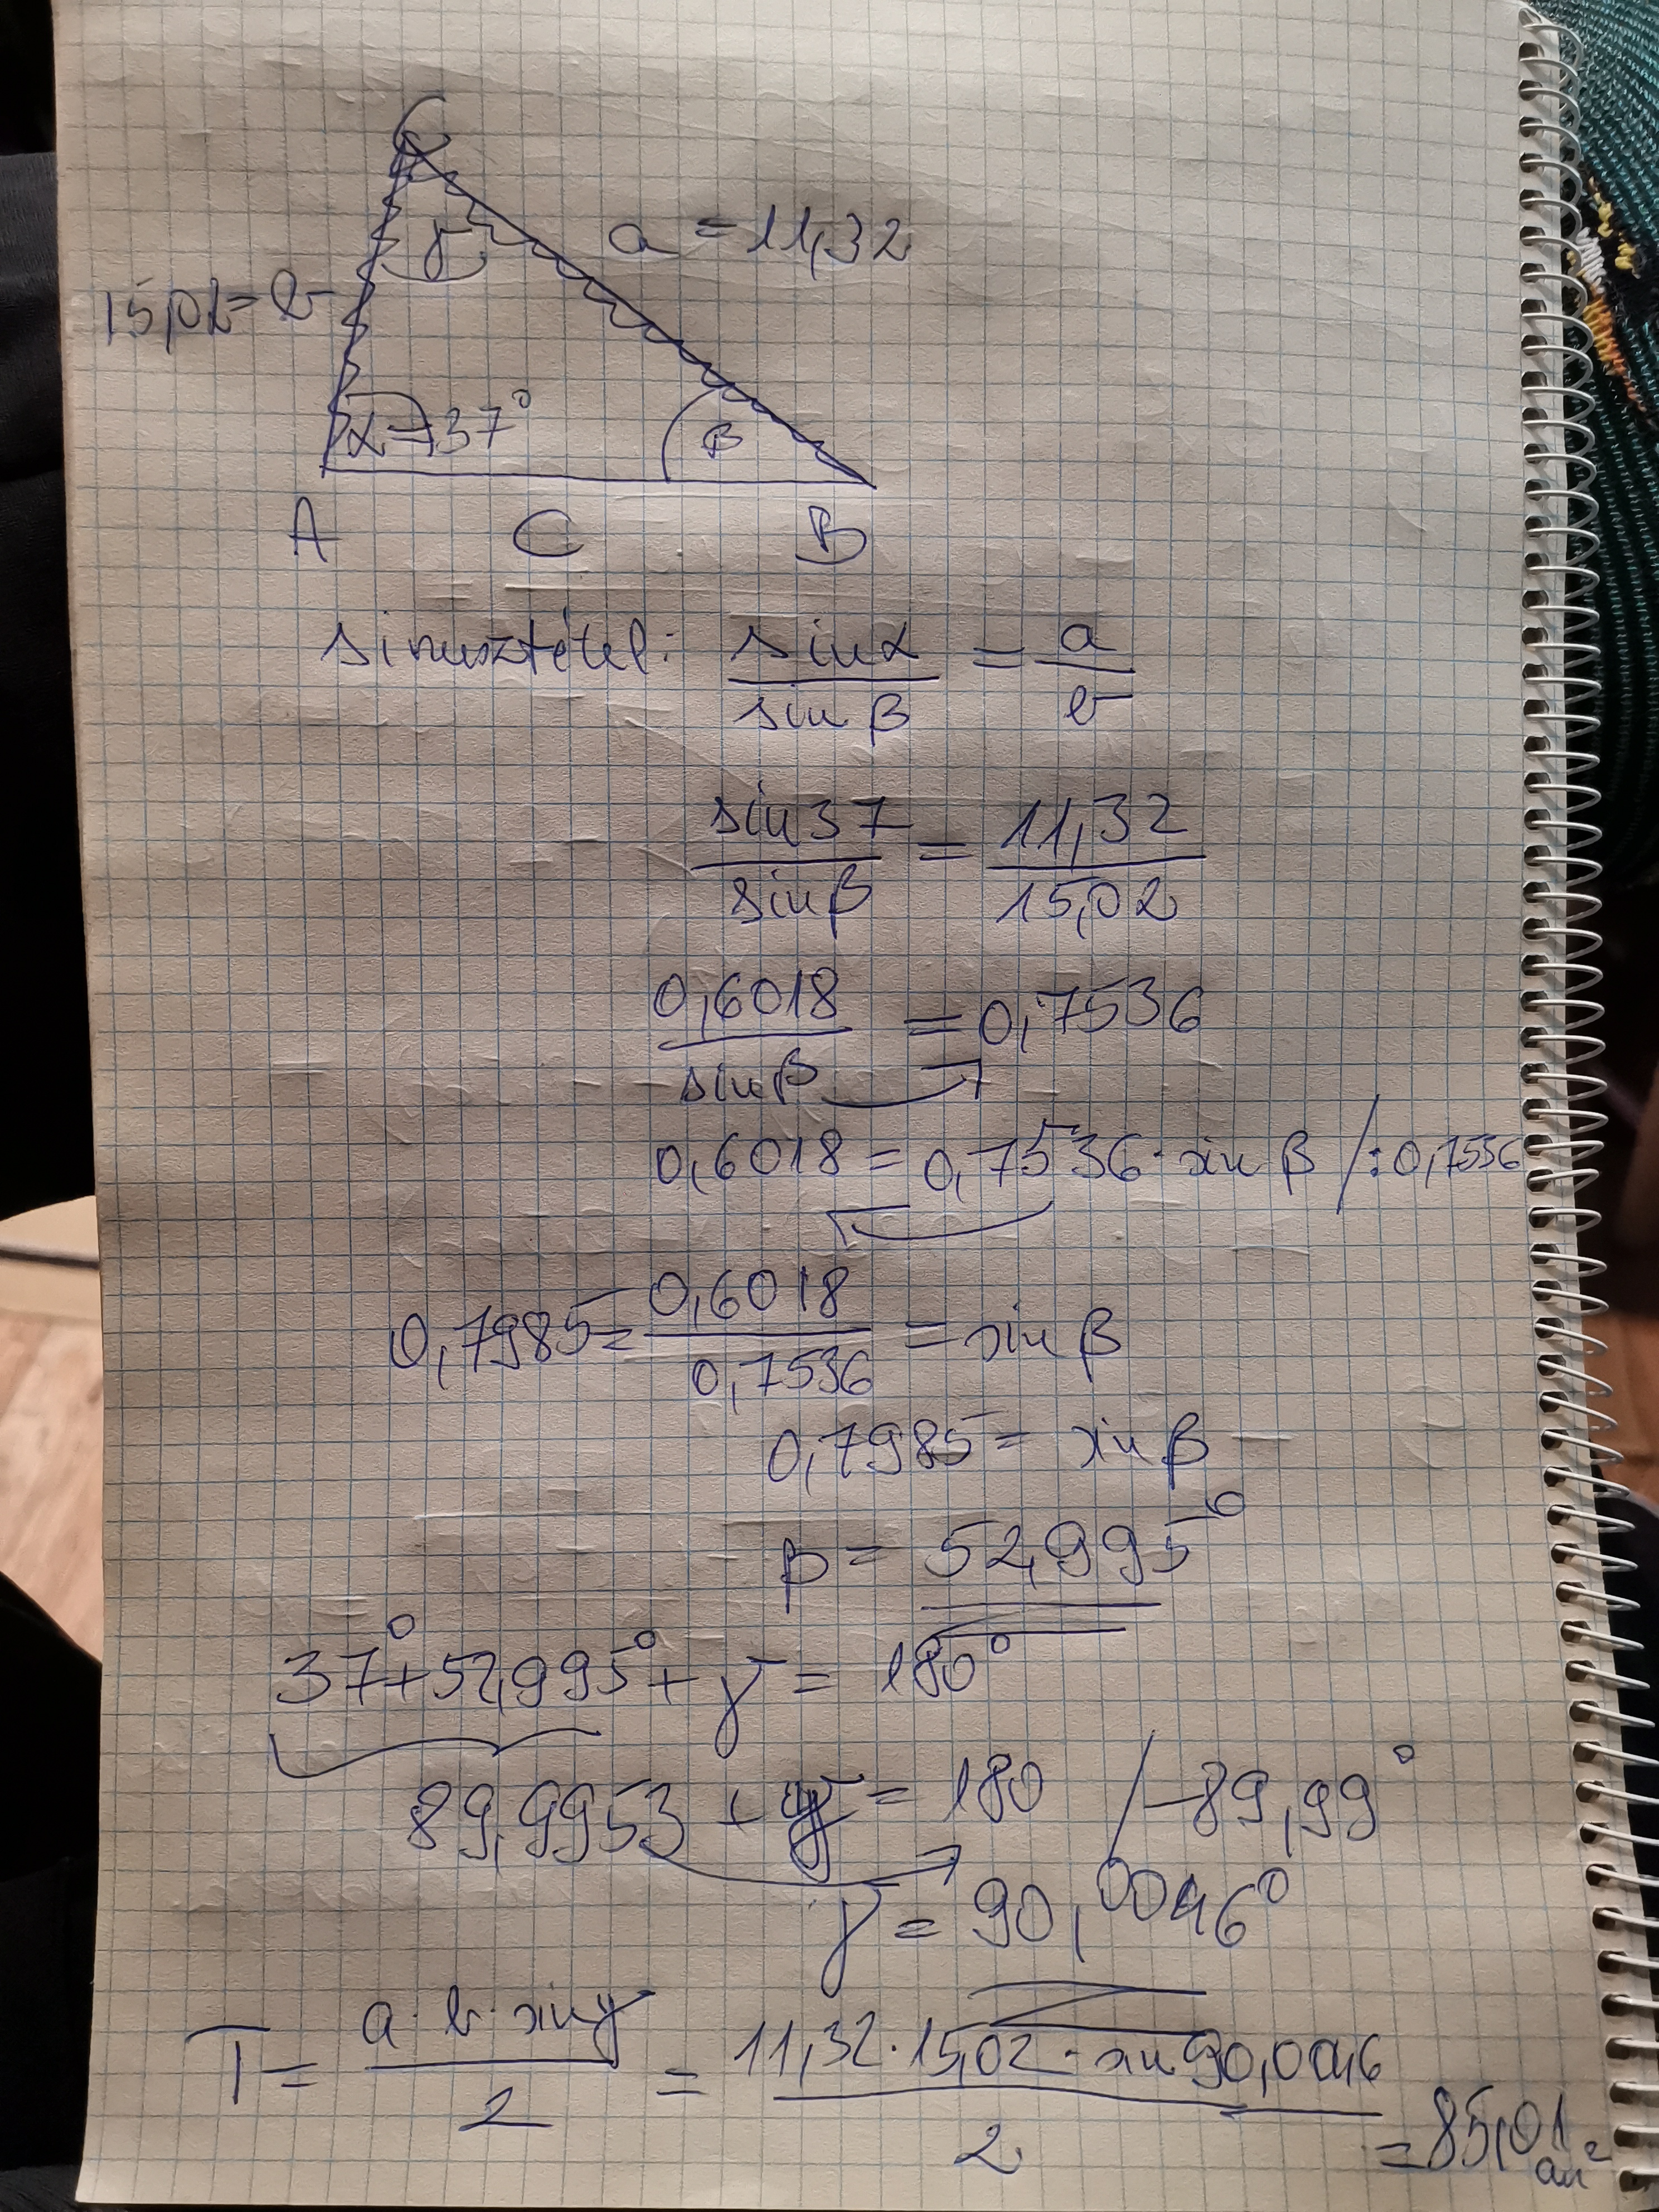 C
γ
a = 11,32
15,02 = b
α = 37°
β
A C B
sinusztétel: sin α / sin β = a / b
sin 37 / sin β = 11,32 / 15,02
0,6018 / sin β = 0,7536
0,6018 = 0,7536 · sin β /: 0,7536
0,7985 = 0,6018 / 0,7536 = sin β
0,7985 = sin β
β = 52,995°
37° + 52,995° + γ = 180°
89,9953 + γ = 180 / -89,99°
γ = 90,0046°
T = a · b · sin γ / 2 = 11,32 · 15,02 · sin 90,0046 / 2 = 85,01 cm²